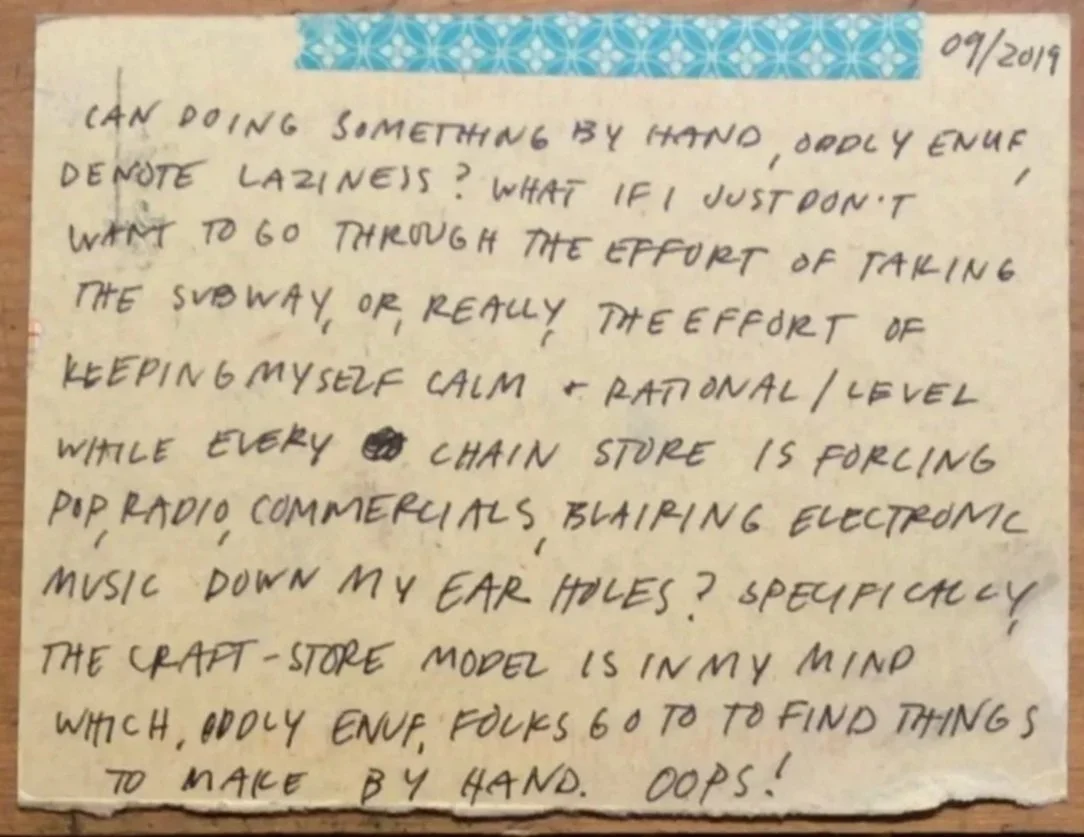 09/2019
CAN DOING SOMETHING BY HAND, ODDLY ENUF,
DENOTE LAZINESS? WHAT IF I JUST DON'T
WANT TO GO THROUGH THE EFFORT OF TAKING
THE SUBWAY, OR, REALLY, THE EFFORT OF
KEEPING MYSELF CALM + RATIONAL/LEVEL
WHILE EVERY CHAIN STORE IS FORCING
POP, RADIO, COMMERCIALS, BLAIRING ELECTRONIC
MUSIC DOWN MY EAR HOLES? SPECIFICALLY,
THE CRAFT-STORE MODEL IS IN MY MIND
WHICH, ODDLY ENUF, FOLKS GO TO TO FIND THINGS
TO MAKE BY HAND. OOPS!